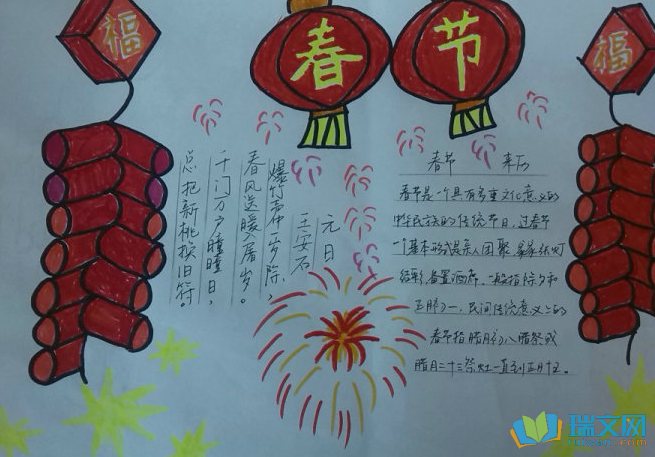 福
春节
福
元日
王安石
爆竹声中一岁除，
春风送暖入屠苏。
千门万户曈曈日，
总把新桃换旧符。
春节 来历
春节是一个具有多重文化意义的
民族的传统节日，过春节
一个基本的是亲人团聚
结彩，备置酒席，一般指除夕和
正月初一，民间传统意义上的
春节指腊月初八腊祭或
腊月二十三祭灶一直到正月十五。
瑞文网